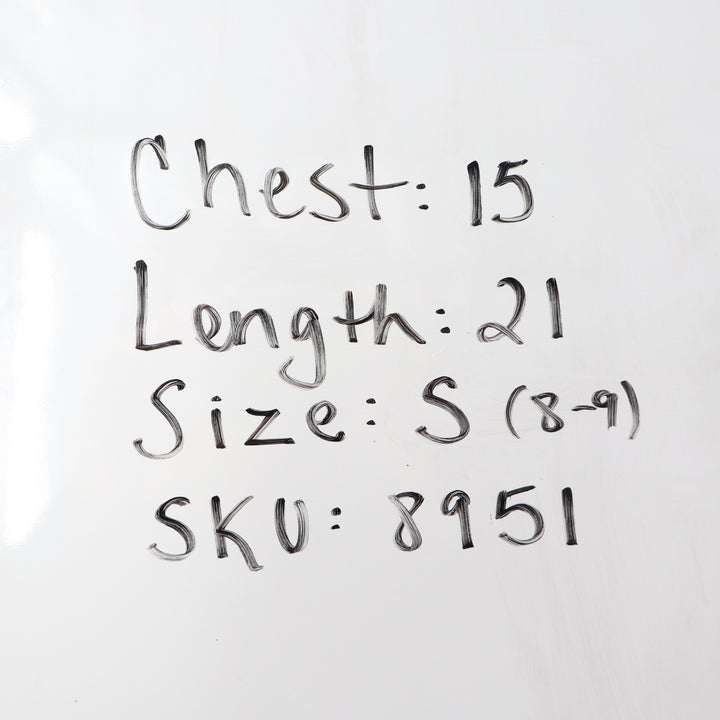 Chest: 15
Length: 21
Size: S (8-9)
SKU: 8951